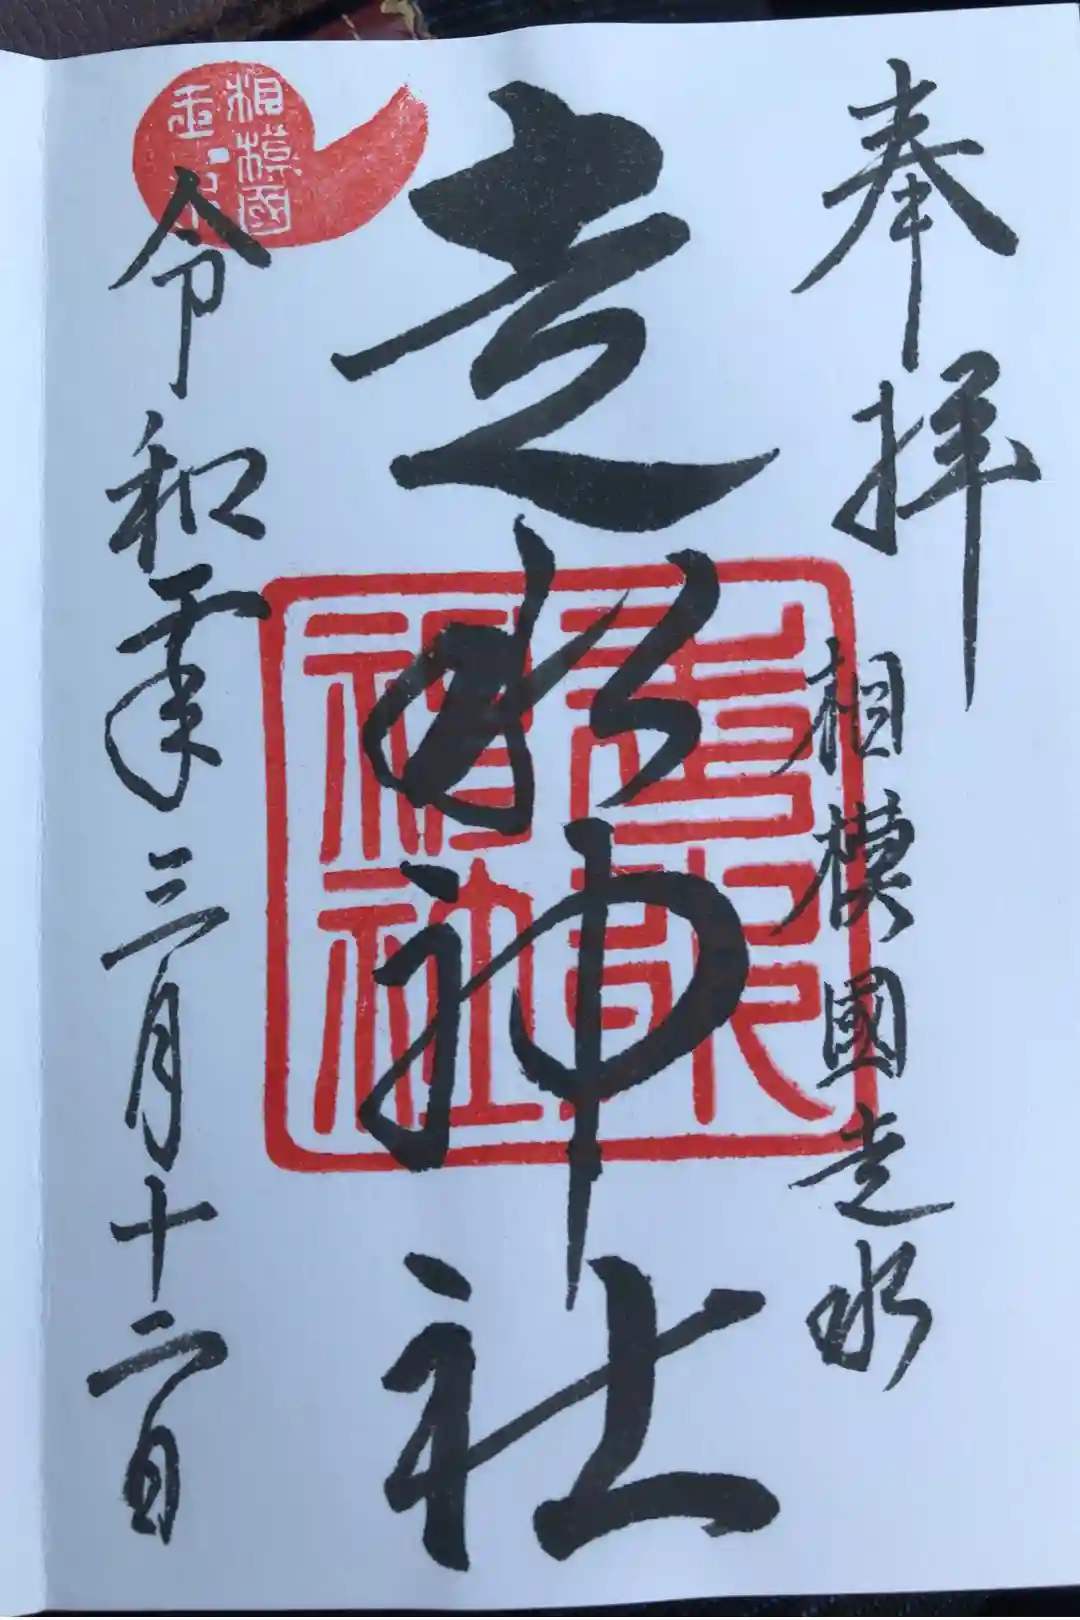 奉拝
相模國走水
走水神社
走水
神社
相模國
走水
令和二年三月十二日